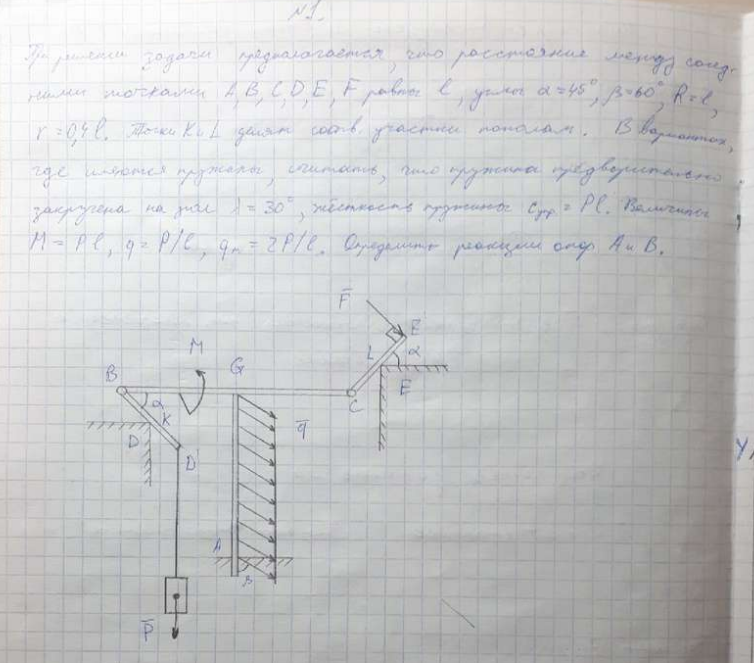 №1.
При решении задачи предполагается, что расстояние между сосед-
ними точками A, B, C, D, E, F равны l, углы α=45°, β=60°, R=l,
r=0,4l. Точки K и L делят соотв. участки пополам. В вариантах,
где имеются пружины, считать, что пружина предварительно
закручена на угол λ=30°, жёсткость пружины Cпр=Pl. Величины
M=Pl, q=P/l, qm=2P/l. Определить реакции опор A и B.
F̄
Ē
M
L α
B G
E
α
C
K
q̄
D
D
A
β
P̄